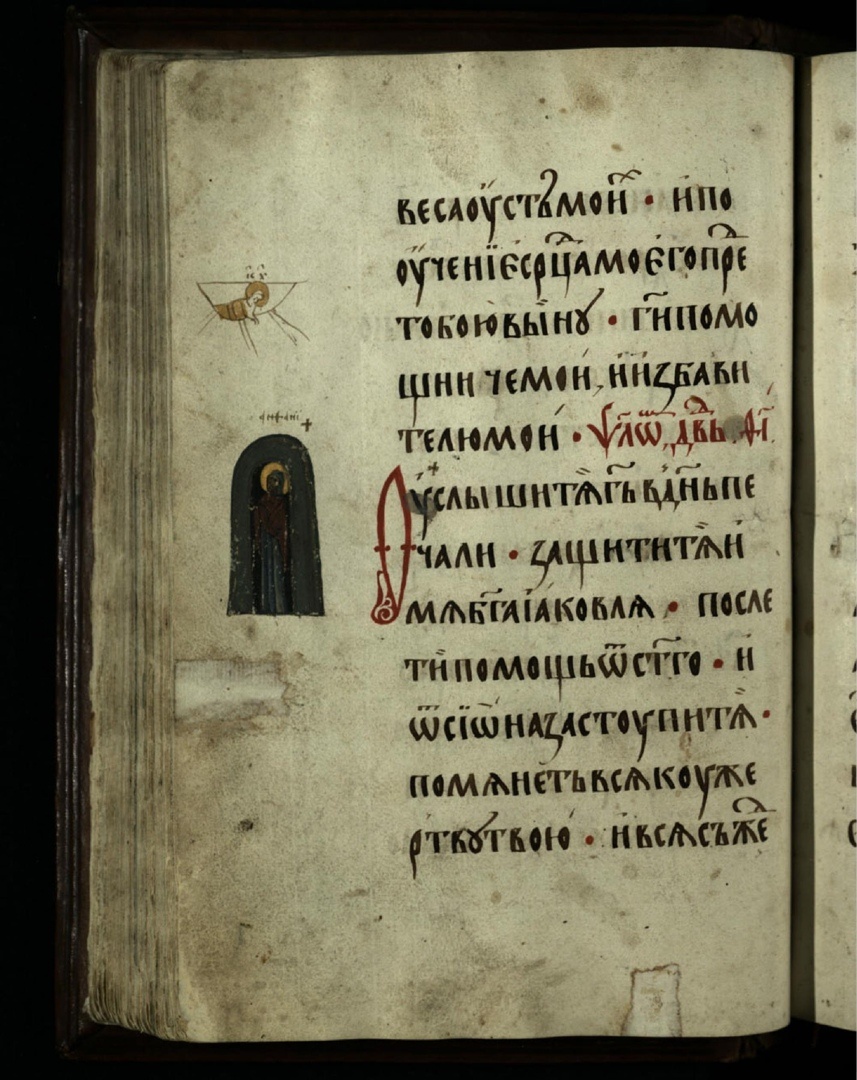 і҃с х҃с
веса оу҆стъ мои҆хъ • и҆ по
оу҆ченїе ср҃ца моє҆го пре
тобою вы́ну • гⷭ҇и помо
щниче мои҆, и҆ и҆ꙁбави
телю мои҆ • ѱл҃оⷨ, дв҃дъ • ѳ҃і
оу҆слышит тѧ̀ гь҃ в дн҃ь пе
чали • ꙁащитит тѧ̀ и҆
мѧ бг҃а і҆аковлѧ • после
ти̇ помощь ѿ ст҃го • и҆
ѿ сїѡна ꙁастоупит тѧ̀ •
помѧнеть всѧкоу же
ртвꙋ твою̀ • и҆ всѧсъже